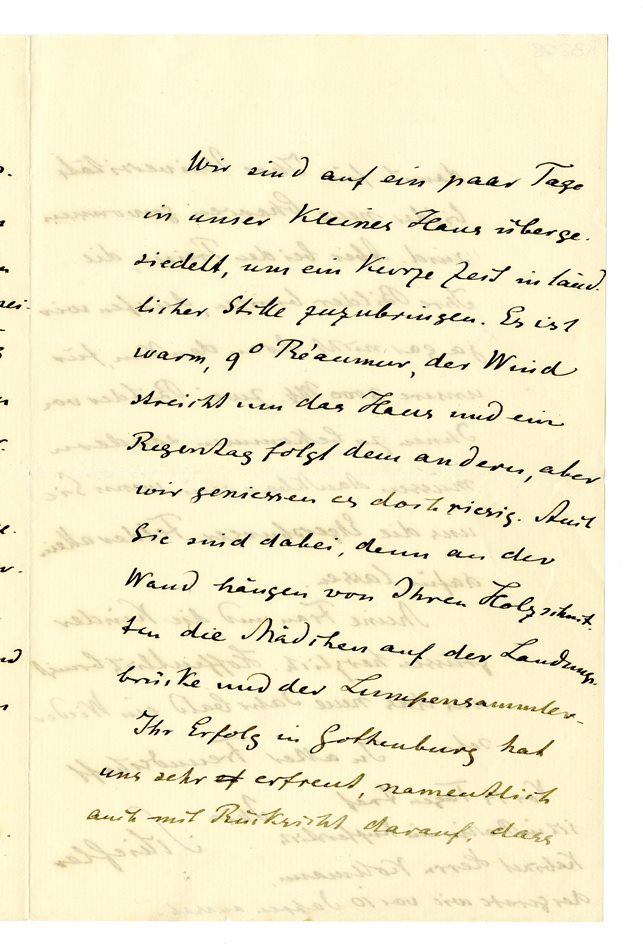 Wir sind auf ein paar Tage
in unser Kleines Haus überge-
siedelt, um ein Kurze Zeit in länd-
licher Stille zuzubringen. Es ist
warm, 9° Réaumur, der Wind
streicht um das Haus und ein
Regentag folgt dem andern, aber
wir geniessen es doch riesig. Auch
Sie sind dabei, denn an der
Wand hängen von Ihren Holzschnit-
ten die Mädchen auf der Landungs-
brücke und der Lumpensammler.
Ihr Erfolg in Gothenburg hat
uns sehr erfreut, namentlich
auch mit Rücksicht darauf, dass